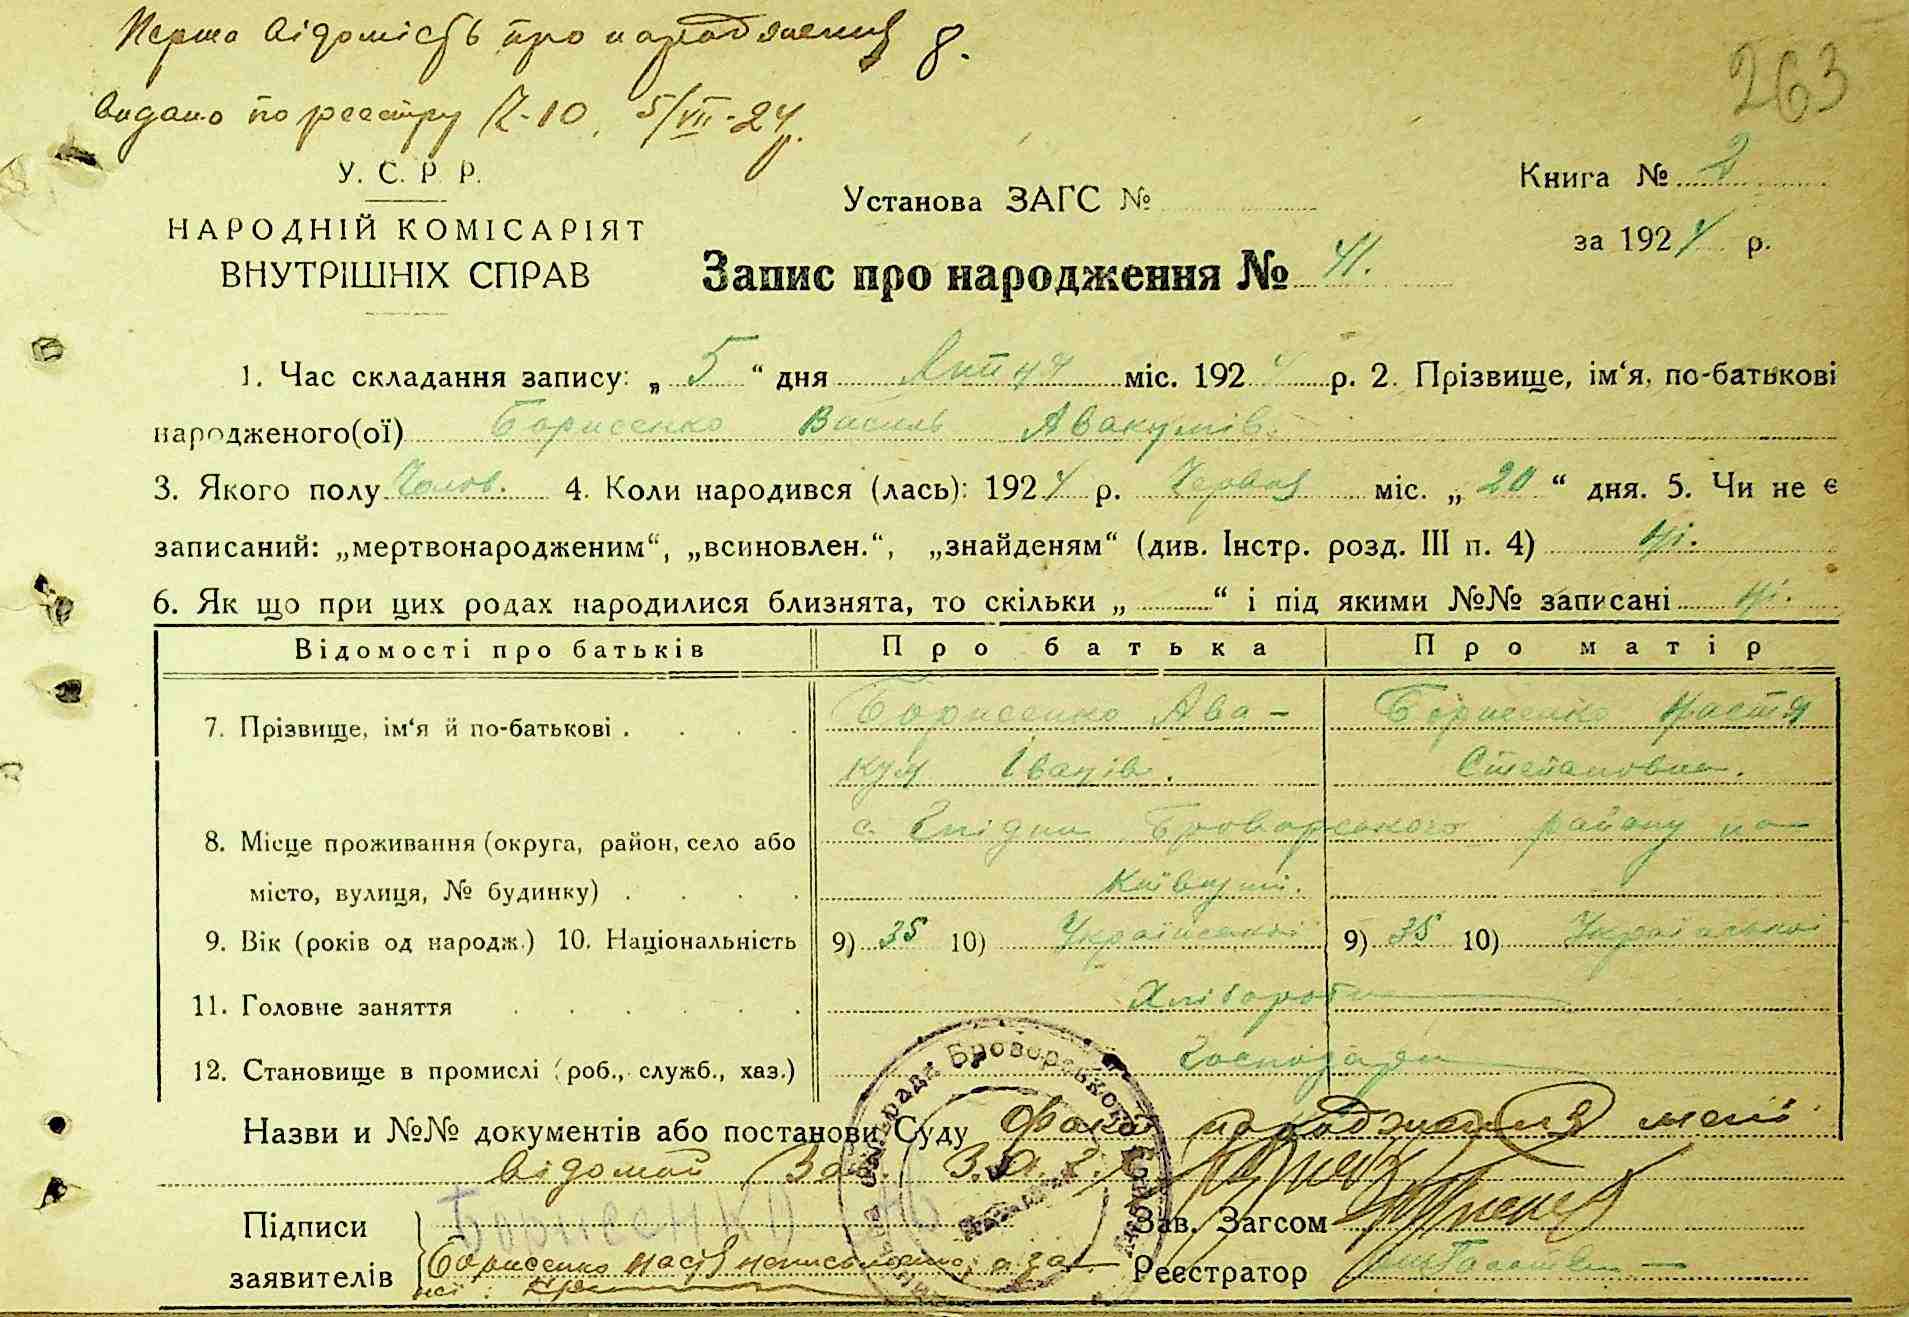 Перша відомість про народження
видано по реєстру 5/VII-24 р.
263
У. С. Р. Р.
НАРОДНІЙ КОМІСАРІЯТ
ВНУТРІШНІХ СПРАВ
Установа ЗАГС №
Книга № 2
за 1924 р.
Запис про народження № 41.
1. Час складання запису: „ 5 “ дня Липня міс. 1924 р. 2. Прізвище, ім‘я, по-батькові
народженого(ої) Борисенко Василь Авакумів.
3. Якого полу Чолов. 4. Коли народився (лась): 1924 р. Червня міс. „ 20 “ дня. 5. Чи не є
записаний: „мертвонародженим“, „всиновлен.“, „знайденям“ (див. Інстр. розд. III п. 4) ні.
6. Як що при цих родах народилися близнята, то скільки „ “ і під якими №№ записані ні.
Відомості про батьків Про батька Про матір
7. Прізвище, ім‘я й по-батькові . Борисенко Ава- Борисенко Настя
кум Іванів. Степановна.
8. Місце проживання (округа, район, село або с. Броварського району на
місто, вулиця, № будинку) Київщині.
9. Вік (років од народж.) 10. Національність 9) 35 10) Української 9) 35 10) Української
11. Головне заняття Хлібороби
12. Становище в промислі (роб., служб., хаз.) Господарі
Назви и №№ документів або постанови Суду Факт народження мені
відомий
Підписи Борисенко Зав. Загсом
заявителів Борисенко Настя неписьменна, а за Реєстратор
неї